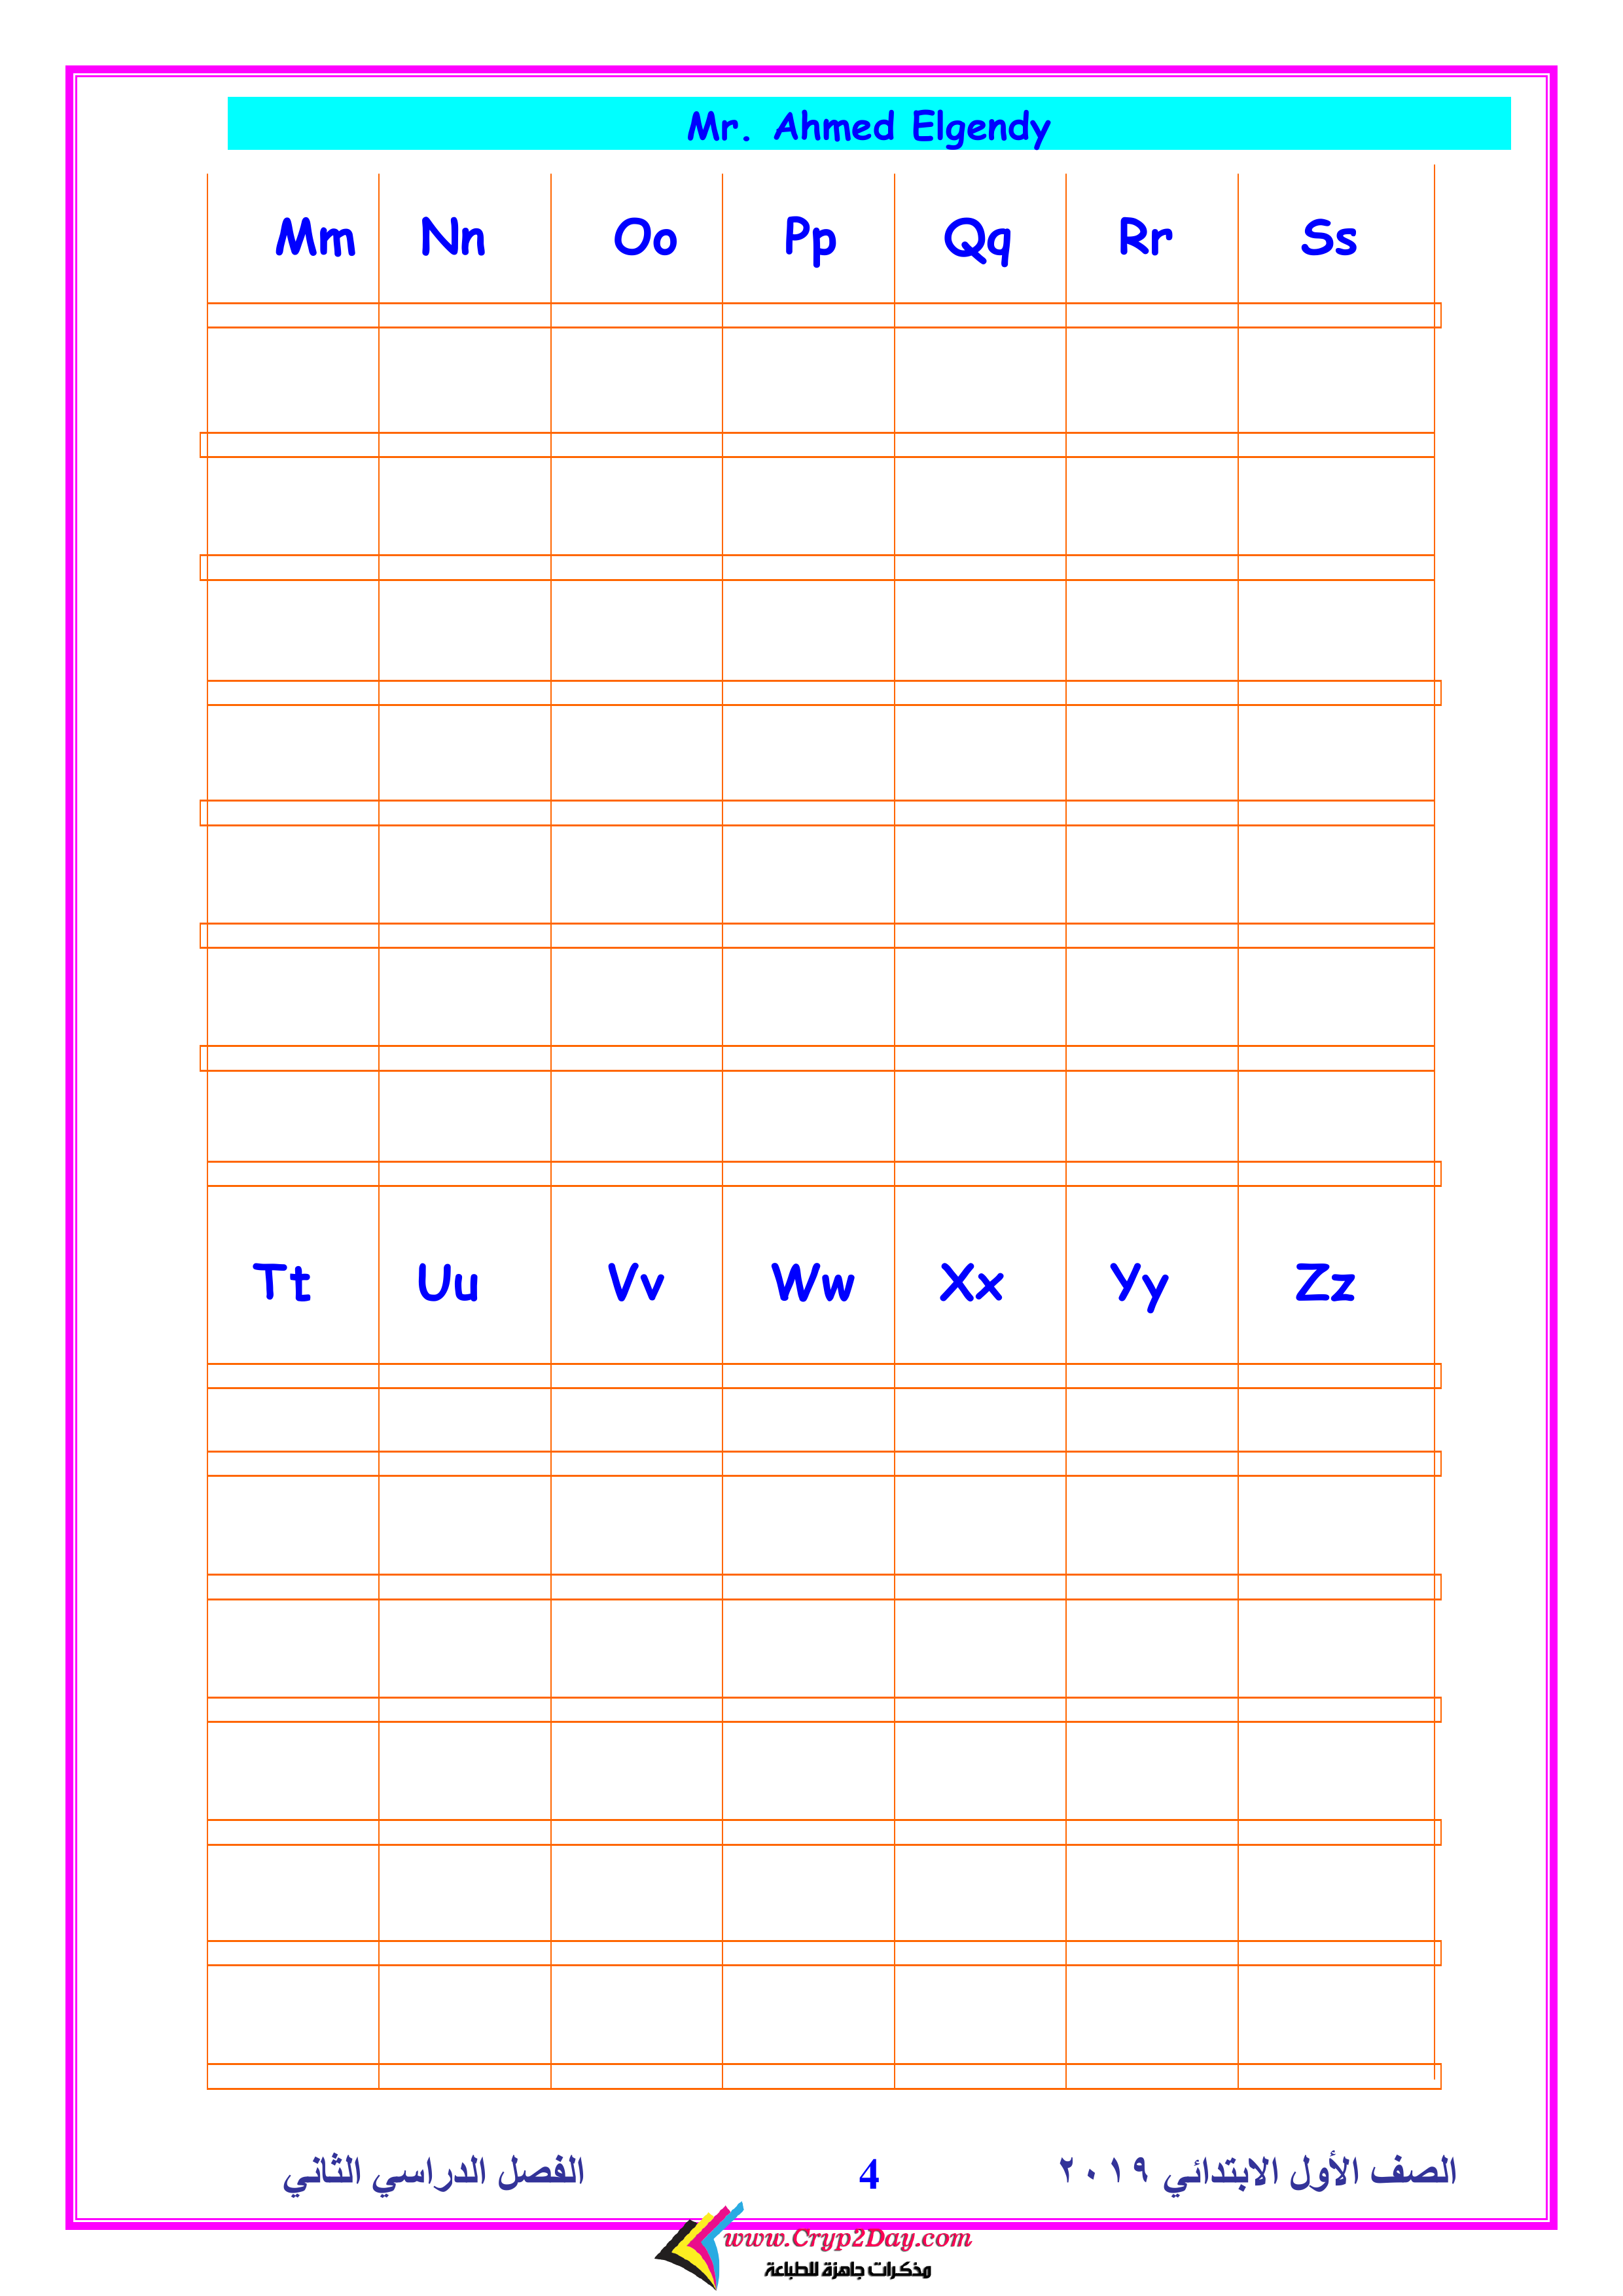 Mr. Ahmed Elgendy
Mm Nn Oo Pp Qq Rr Ss
Tt Uu Vv Ww Xx Yy Zz
الصف الأول الابتدائي ٢٠١٩ 4 الفصل الدراسي الثاني
www.Cryp2Day.com
مذكرات جاهزة للطباعة